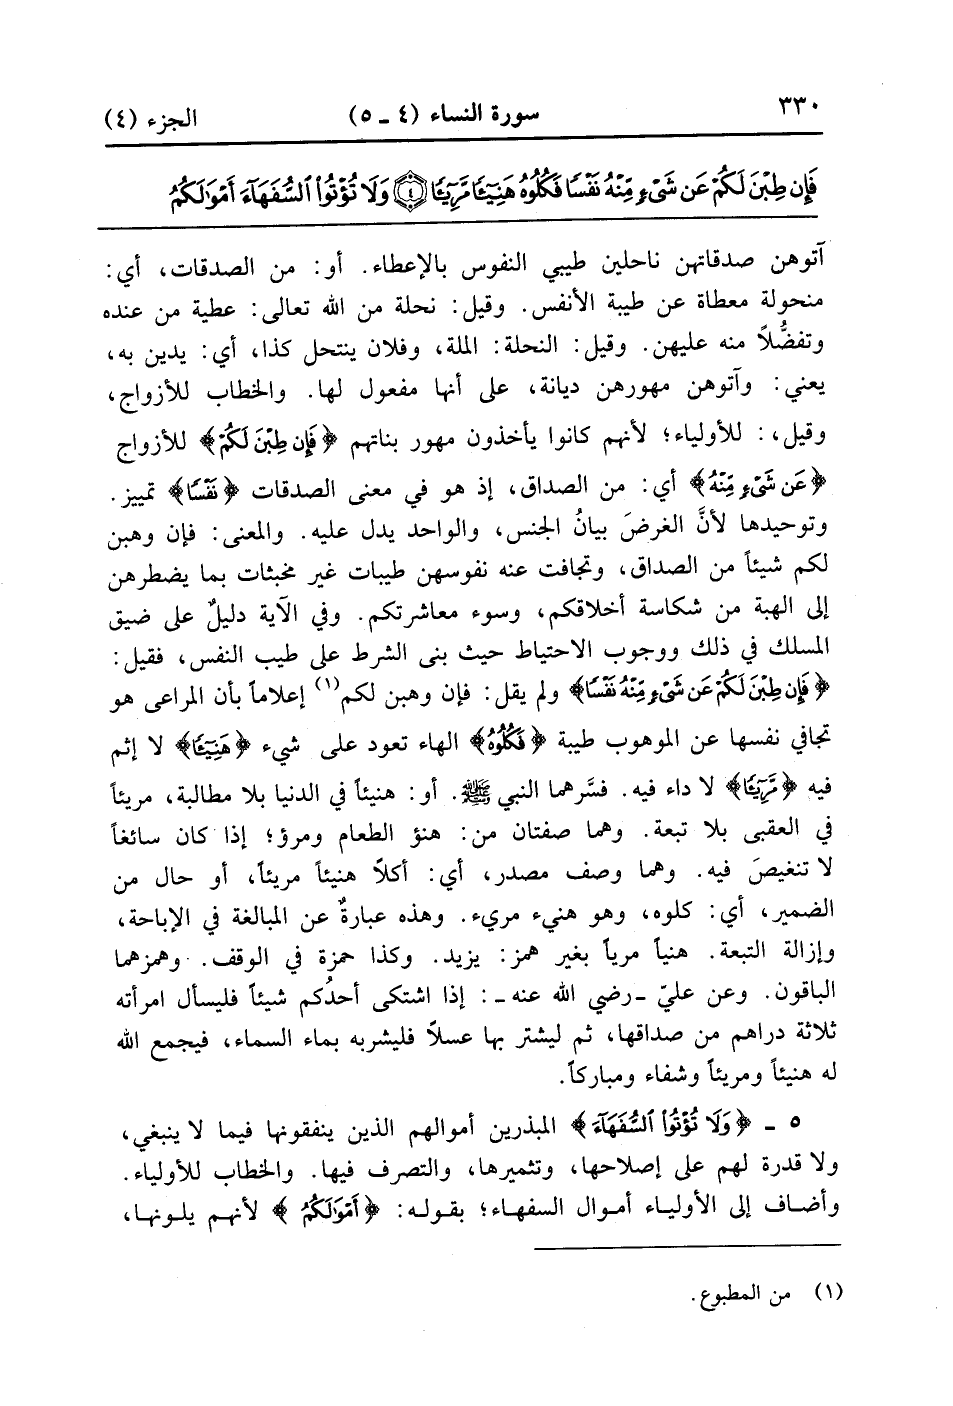 ٣٣٠ سورة النساء (٤ ـ ٥) الجزء (٤)
فَإِن طِبْنَ لَكُمْ عَن شَىْءٍ مِّنْهُ نَفْسًا فَكُلُوهُ هَنِيٓـًٔا مَّرِيٓـًٔا ﴿٤﴾ وَلَا تُؤْتُوا۟ ٱلسُّفَهَآءَ أَمْوَٰلَكُمُ
آتوهن صدقاتهن ناحلين طيبي النفوس بالإعطاء. أو: من الصدقات، أي:
منحولة معطاة عن طيبة الأنفس. وقيل: نحلة من الله تعالى: عطية من عنده
وتفضُّلاً منه عليهن. وقيل: النحلة: الملة، وفلان ينتحل كذا، أي: يدين به،
يعني: وآتوهن مهورهن ديانة، على أنها مفعول لها. والخطاب للأزواج،
وقيل،: للأولياء؛ لأنهم كانوا يأخذون مهور بناتهم ﴿فَإِن طِبْنَ لَكُمْ﴾ للأزواج
﴿عَن شَىْءٍ مِّنْهُ﴾ أي: من الصداق، إذ هو في معنى الصدقات ﴿نَفْسًا﴾ تمييز.
وتوحيدها لأنَّ الغرضَ بيانُ الجنس، والواحد يدل عليه. والمعنى: فإن وهبن
لكم شيئاً من الصداق، وتجافت عنه نفوسهن طيبات غير مخبثات بما يضطرهن
إلى الهبة من شكاسة أخلاقكم، وسوء معاشرتكم. وفي الآية دليلٌ على ضيق
المسلك في ذلك ووجوب الاحتياط حيث بنى الشرط على طيب النفس، فقيل:
﴿فَإِن طِبْنَ لَكُمْ عَن شَىْءٍ مِّنْهُ نَفْسًا﴾ ولم يقل: فإن وهبن لكم(١) إعلاماً بأن المراعى هو
تجافي نفسها عن الموهوب طيبة ﴿فَكُلُوهُ﴾ الهاء تعود على شيء ﴿هَنِيٓـًٔا﴾ لا إثم
فيه ﴿مَّرِيٓـًٔا﴾ لا داء فيه. فسَّرهما النبي ﷺ. أو: هنيئاً في الدنيا بلا مطالبة، مريئاً
في العقبى بلا تبعة. وهما صفتان من: هنؤ الطعام ومرؤ؛ إذا كان سائغاً
لا تنغيصَ فيه. وهما وصف مصدر، أي: أكلاً هنيئاً مريئاً، أو حال من
الضمير، أي: كلوه، وهو هنيء مريء. وهذه عبارةٌ عن المبالغة في الإباحة،
وإزالة التبعة. هنياً مرياً بغير همز: يزيد. وكذا حمزة في الوقف. وهمزهما
الباقون. وعن عليّ ـ رضي الله عنه ـ: إذا اشتكى أحدُكم شيئاً فليسأل امرأته
ثلاثة دراهم من صداقها، ثم ليشتر بها عسلاً فليشربه بماء السماء، فيجمع الله
له هنيئاً ومريئاً وشفاء ومباركاً.
٥ ـ ﴿وَلَا تُؤْتُوا۟ ٱلسُّفَهَآءَ﴾ المبذرين أموالهم الذين ينفقونها فيما لا ينبغي،
ولا قدرة لهم على إصلاحها، وتثميرها، والتصرف فيها. والخطاب للأولياء.
وأضاف إلى الأولياء أموال السفهاء؛ بقوله: ﴿أَمْوَٰلَكُمُ﴾ لأنهم يلونها،
(١) من المطبوع.